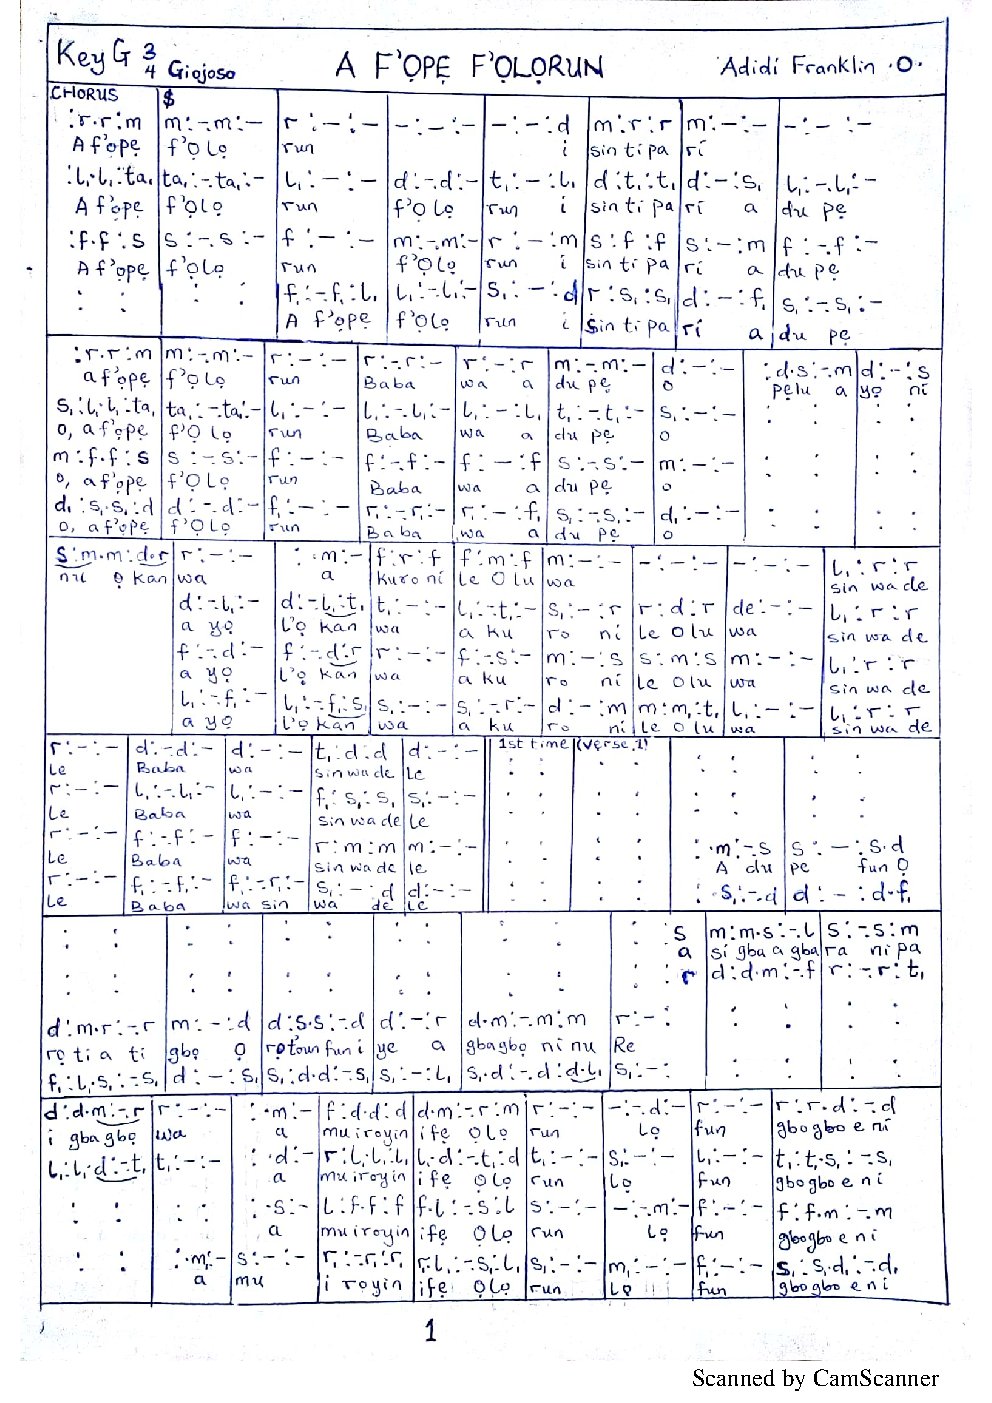 Key G 3/4 Giojoso A F'ỌPẸ F'ỌLỌRUN Adidi Franklin .O.
CHORUS $
:r.r:m m:-.m:- r:-:- -:-:- -:-:d m:r:r m:-:- -:-:-
A f'ọpẹ f'Ọlọ run i sin ti pa rí
:l,.l,:ta, ta,:-.ta,:- l,:-:- d:-.d:- t,:-:l, d:t,:t, d:-:s, l,:-.l,:-
A f'ọpẹ f'Ọlọ run f'Ọlọ run i sin ti pa rí a du pẹ
:f.f:s s:-.s:- f:-:- m:-.m:- r:-:m s:f:f s:-:m f:-.f:-
A f'ọpẹ f'Ọlọ run f'Ọlọ run i sin ti pa rí a du pẹ
: : : : f,:-.f,:l, l,:-.l,:- s,:-:d r:s,:s, d:-:f, s,:-.s,:-
A f'ọpẹ f'Ọlọ run i sin ti pa rí a du pẹ
:r.r:m m:-.m:- r:-:- r:-.r:- r:-:r m:-.m:- d:-:- :d.s:-.m d:-:s
a f'ọpẹ f'Ọlọ run Baba wa a du pẹ o pẹlu a yọ ní
s,:l,.l,:ta, ta,:-.ta,:- l,:-:- l,:-.l,:- l,:-:l, t,:-.t,:- s,:-:- : : : :
o, a f'ọpẹ f'Ọlọ run Baba wa a du pẹ o
m:f.f:s s:-.s:- f:-:- f:-.f:- f:-:f s:-.s:- m:-:- : : : :
o, a f'ọpẹ f'Ọlọ run Baba wa a du pẹ o
d,:s,.s,:d d:-.d:- f,:-:- r,:-.r,:- r,:-:f, s,:-.s,:- d,:-:- : : : :
o, a f'ọpẹ f'Ọlọ run Baba wa a du pẹ o
s:m.m:d.r r:-:- :.m:- f:r:f f:m:f m:-:- -:-:- -:-:- l,:r:r
nú ọ kan wa a kuro ní le Olu wa sin wa de
d:-.l,:- d:-.l,:t, t,:-:- l,:-.t,:- s,:-:r r:d:r de:-:- l,:r:r
a yọ l'ọ kan wa a ku ro ní le Olu wa sin wa de
f:-.d:- f:-.d:r r:-:- f:-.s:- m:-:s s:m:s m:-:- l,:r:r
a yọ l'ọ kan wa a ku ro ní le Olu wa sin wa de
l,:-.f,:- l,:-.f,:s, s,:-:- s,:-.r,:- d:-:m m:m,:t, l,:-:- l,:r:r
a yọ l'ọ kan wa a ku ro ní le Olu wa sin wa de
r:-:- d:-.d:- d:-:- t,:d:d d:-:- 1st time (verse 1) : : : : : : : :
le Baba wa sin wa de le
r:-:- l,:-.l,:- l,:-:- f,:s,:s, s,:-:- : : : : : : : :
le Baba wa sin wa de le
r:-:- f:-.f:- f:-:- r:m:m m:-:- : : : : :.m:-.s s:-:s.d
le Baba wa sin wa de le A du pẹ fun Ọ
r:-:- f,:-.f,:- f,:-.r,:- s,:-:d d:-:- : : : : :.s,:-.d d:-:d.f,
le Baba wa sin wa de le
: : : : : : : : : : : :s m:m.s:-.l s:-.s:m
a sí gba a gba ra ni pa
: : : : : : : : : : : :r d:d.m:-.f r:-.r:t,
d:m.r:-.r m:-:d d:s.s:-.d d:-:r d.m:-.m:m r:-: : : : :
rọ ti a ti gbọ ọ rọ t'oun fun i ye a gbagbọ ni nu Re
f,:l,.s,:-.s, d:-:s, s,:d.d:-.s, s,:-:l, s,.d:-.d:d.l, s,:-: : : : :
d:d.m:-.r r:-:- :.m:- f:d:d.d d.m:-.r:m r:-:- -:-.d:- r:-:- r:r.d:-.d
i gbagbọ wa a mu iroyin ifẹ Ọlọ run lọ fun gbogbo e ní
l,:l,.d:-.t, t,:-:- :.d:- r:l,:l,.l, l,.d:-.t,:d t,:-:- s,:-:- l,:-:- t,:t,.s,:-.s,
a mu iroyin ifẹ Ọlọ run lọ fun gbogbo e ní
: : : : :.s:- l:f.f:f f.l:-.s:l s:-:- -:-.m:- f:-:- f:f.m:-.m
a mu iroyin ifẹ Ọlọ run lọ fun gbogbo e ní
: : :.m,:- s:-:- r,:-.r,:r, r,.l,:-.s,:l, s,:-:- m,:-:- f,:-:- s,:s,.d,:-.d,
a mu i royin ifẹ Ọlọ run lọ fun gbogbo e ní
1
Scanned by CamScanner